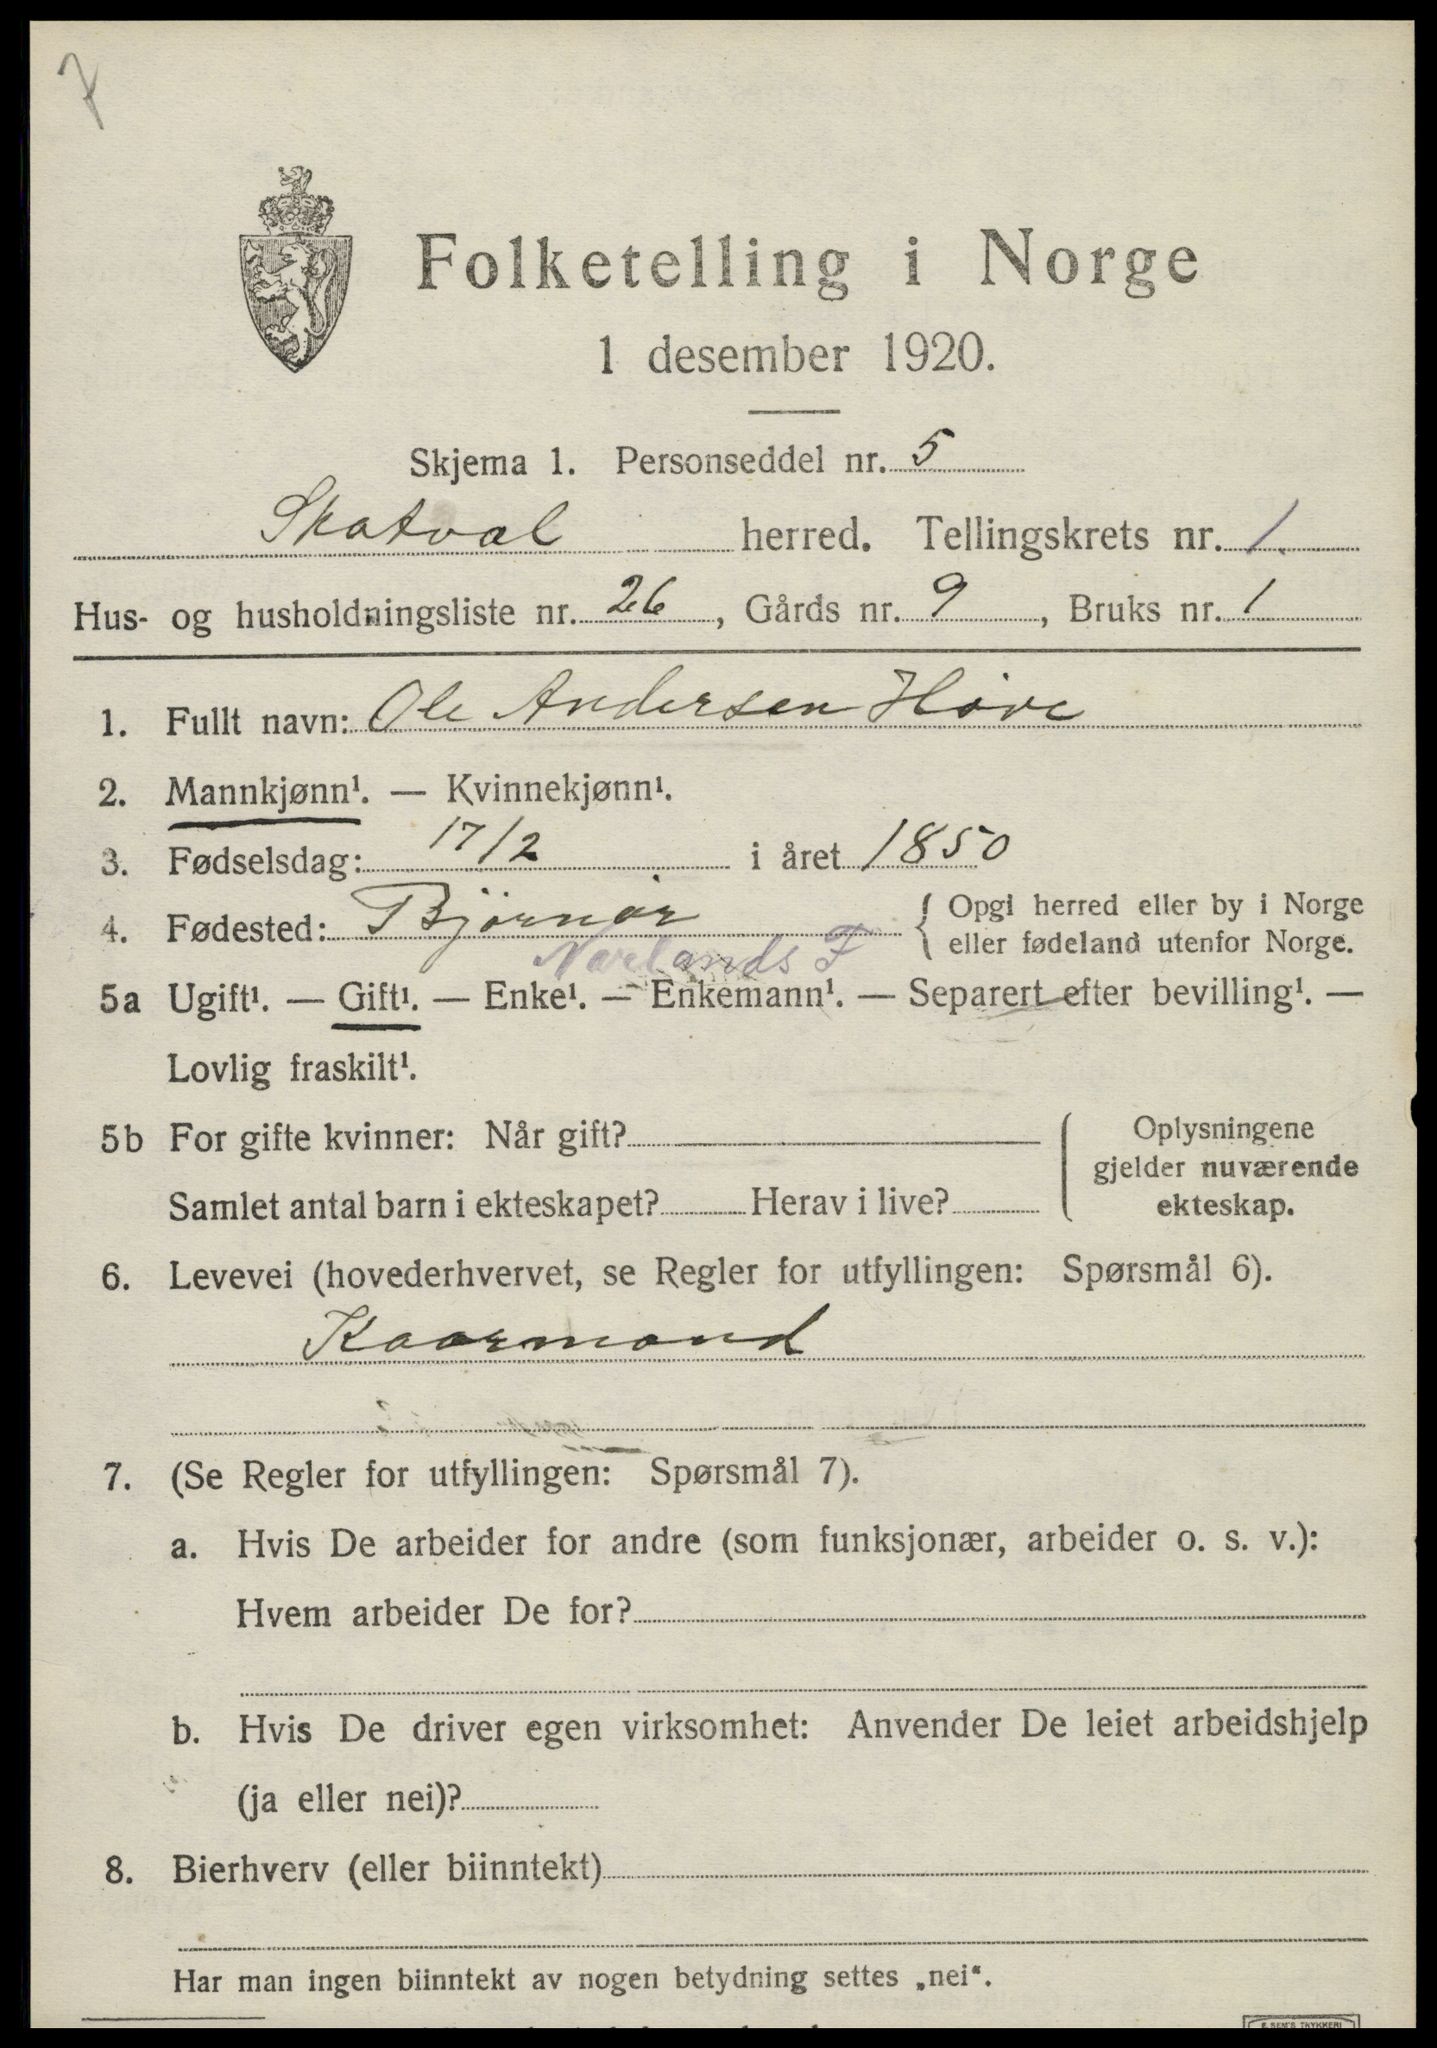 7
Folketelling i Norge
1 desember 1920.
Skjema 1. Personseddel nr. 5
Skatval herred. Tellingskrets nr. 1.
Hus- og husholdningsliste nr. 26, Gårds nr. 9, Bruks nr. 1
1. Fullt navn: Ole Andersen Höve
2. Mannkjønn¹. — Kvinnekjønn¹.
3. Fødselsdag: 17/2 i året 1850
4. Fødested: Björnör { Opgi herred eller by i Norge
eller fødeland utenfor Norge.
F
5a Ugift¹. — Gift¹. — Enke¹. — Enkemann¹. — Separert efter bevilling¹. —
Lovlig fraskilt¹.
5b For gifte kvinner: Når gift? { Oplysningene
gjelder nuværende
Samlet antal barn i ekteskapet? Herav i live? ekteskap.
6. Levevei (hovederhvervet, se Regler for utfyllingen: Spørsmål 6).
Kaarmand
7. (Se Regler for utfyllingen: Spørsmål 7).
a. Hvis De arbeider for andre (som funksjonær, arbeider o. s. v.):
Hvem arbeider De for?
b. Hvis De driver egen virksomhet: Anvender De leiet arbeidshjelp
(ja eller nei)?
8. Bierhverv (eller biinntekt)
Har man ingen biinntekt av nogen betydning settes „nei“.